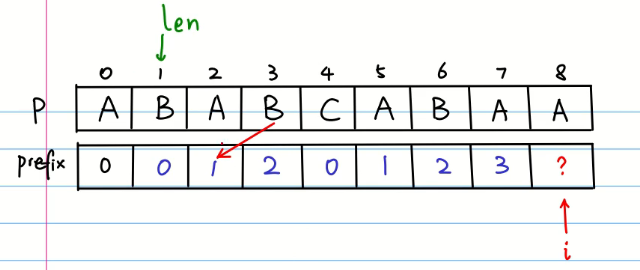 len
0 1 2 3 4 5 6 7 8
P A B A B C A B A A
prefix 0 0 1 2 0 1 2 3 ?
i